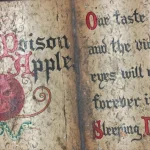 Poison
Apple
Our taste
and the vi
eyes will
forever i
Sleeping